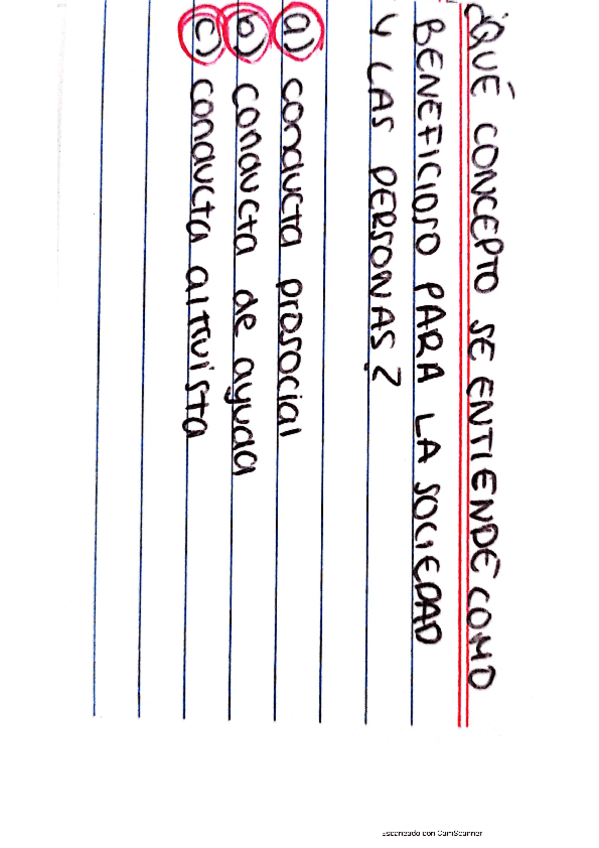 ¿QUÉ CONCEPTO SE ENTIENDE COMO
BENEFICIOSO PARA LA SOCIEDAD
Y LAS PERSONAS?
a) conducta prosocial
b) conducta de ayuda
c) conducta altruista
Escaneado con CamScanner